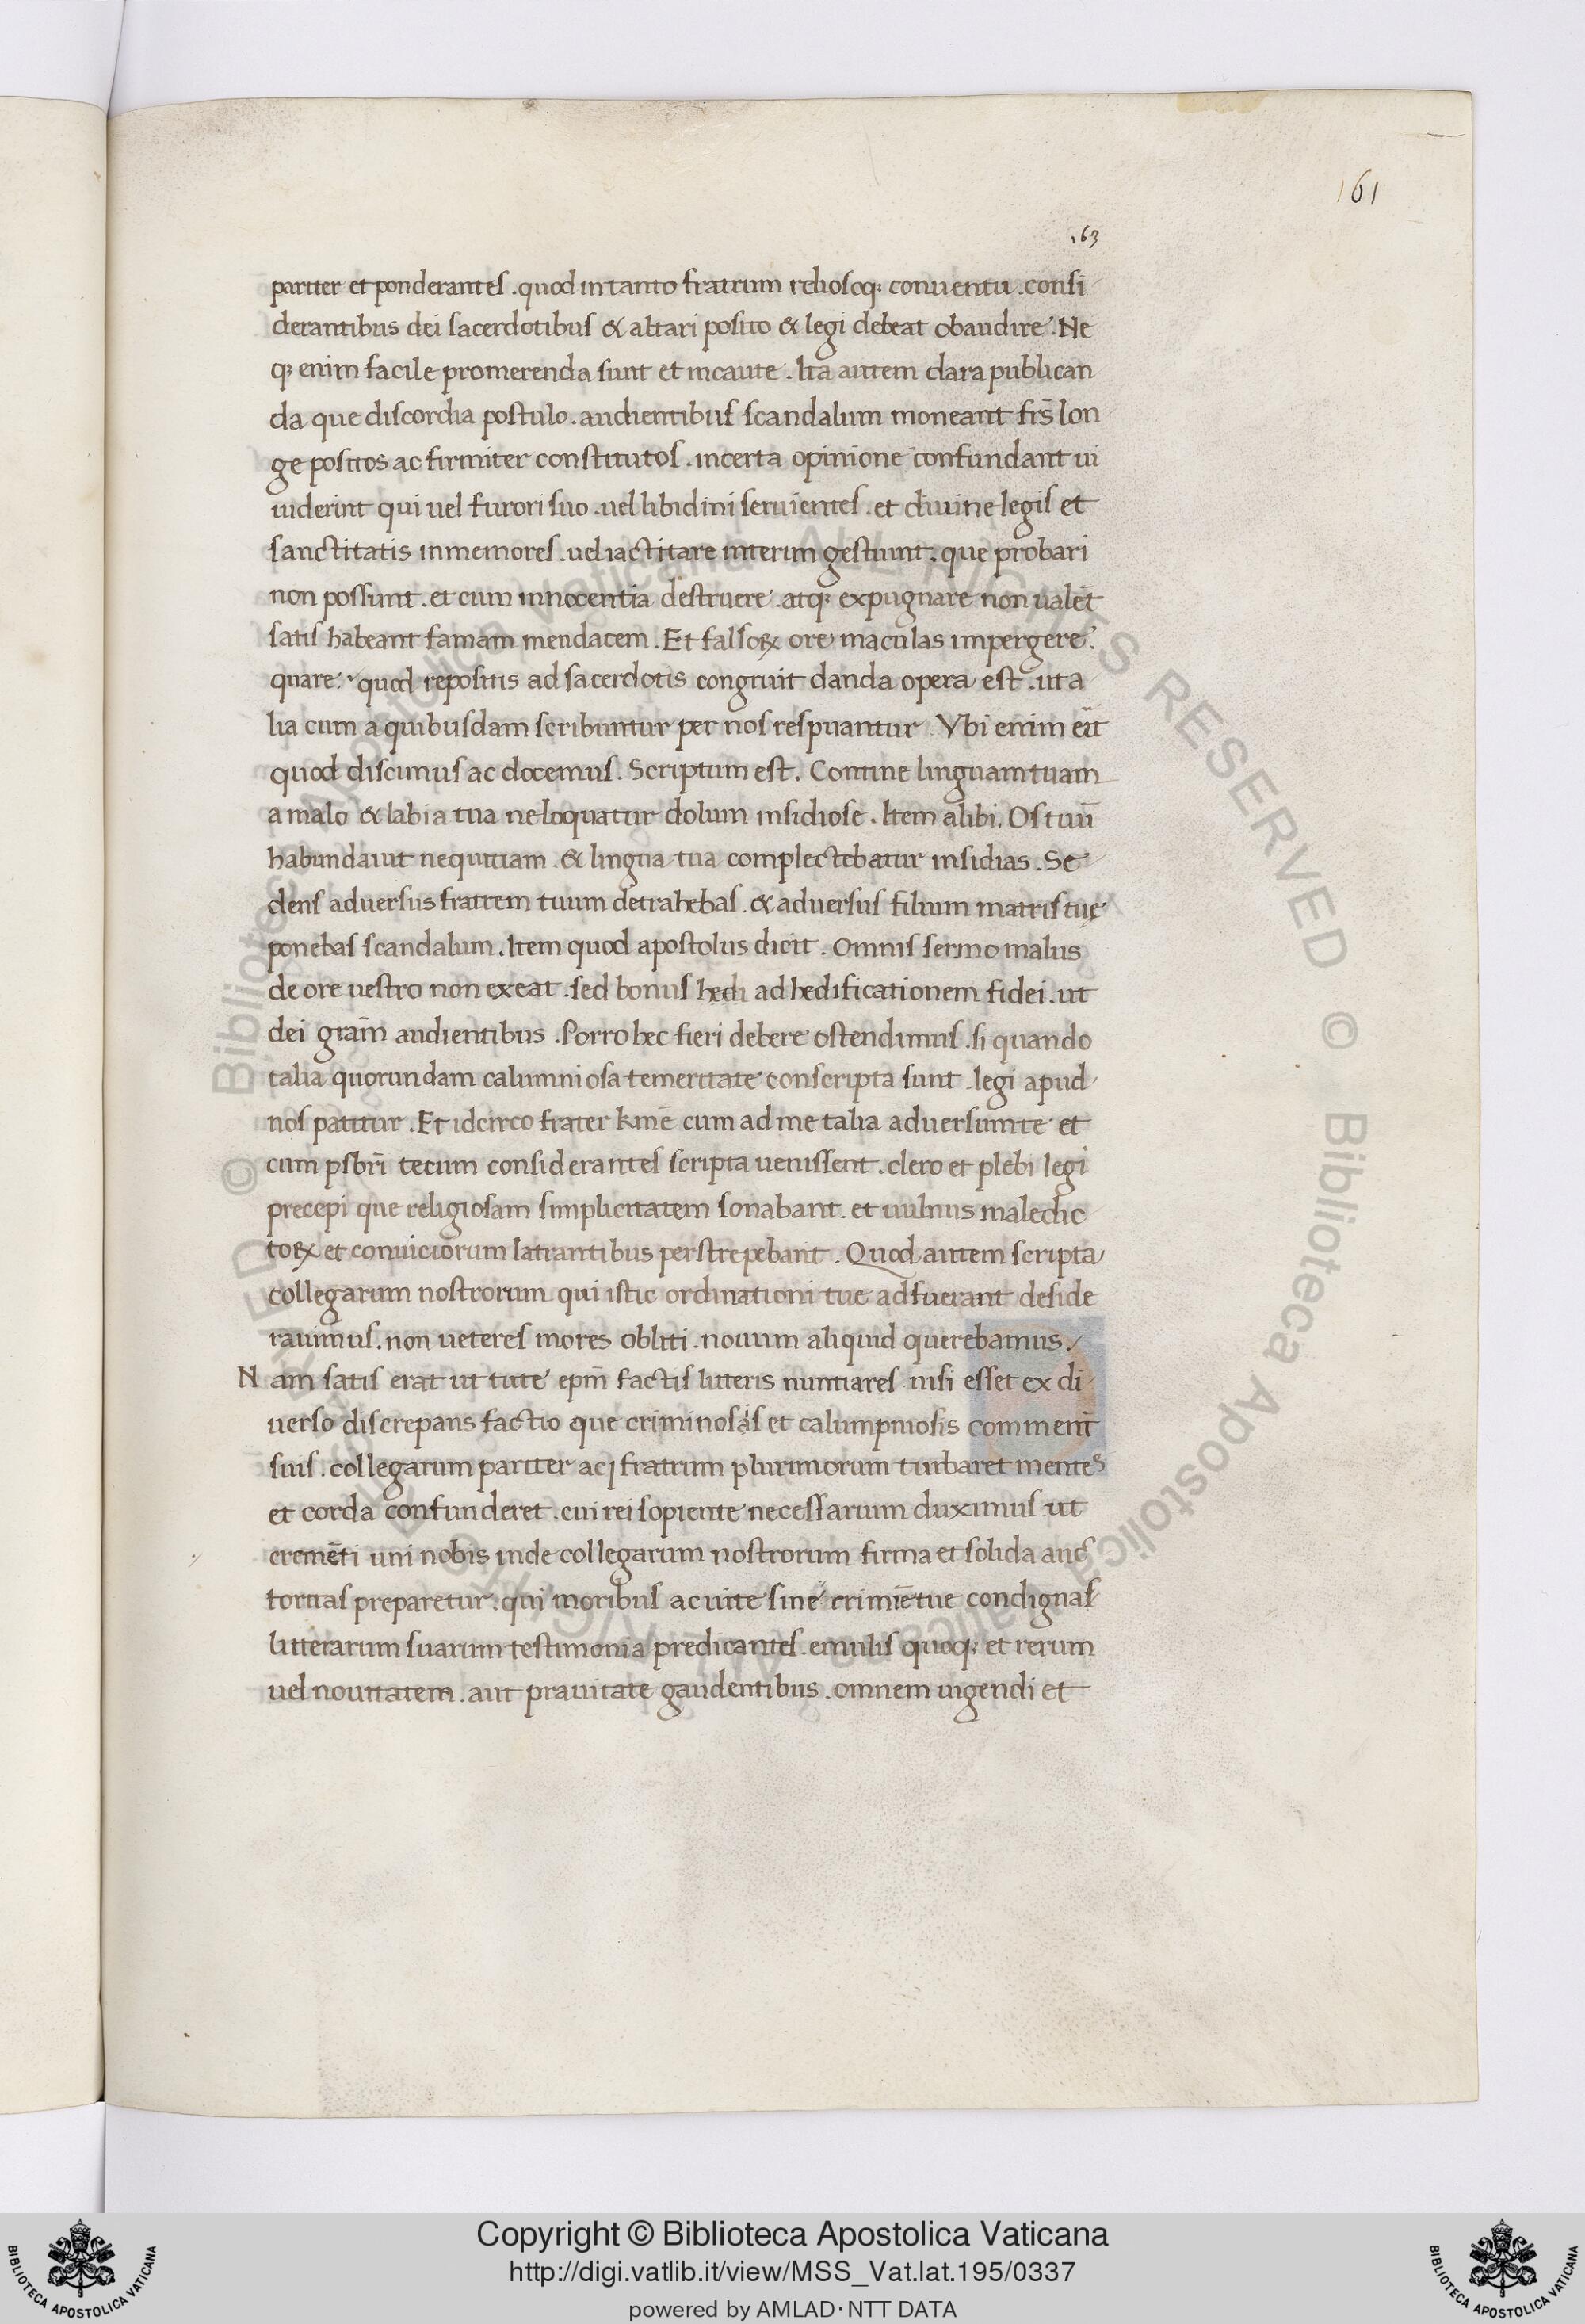 161
163
pariter et ponderantes . quod in tanto fratrum relioso q; conuentu . consi
derantibus dei sacerdotibus & altari posito & legi debeat obaudire . Ne
q; enim facile promerenda sunt et incaute . Ita autem clara publican
da que discordia postulo . audientibus scandalum moneant frs̄ lon
ge positos ac firmiter constitutos . incerta opinione confundant ui
uiderint qui uel furori suo . uel libidini seruientes . et diuine legis et
sanctitatis inmemores . uel iactitare interim gestiunt . que probari
non possunt . et cum innocentia destruere . atq; expugnare non ualēt
satis habeant famam mendacem . Et falsoꝝ ore maculas impergere .
quare . quod repositis ad sacerdotis congruit danda opera est . ut a
lia cum a quibusdam scribuntur per nos respuantur . Vbi enim eīt
quod discimus ac docemus . Scriptum est . Contine linguam tuam
a malo & labia tua ne loquatur dolum insidiose . Item alibi . Os tuū
habundauit nequitiam . & lingua tua complectebatur insidias . Se
dens aduersus fratrem tuum detrahebas . & aduersus filium matris tuę
ponebas scandalum . Item quod apostolus dicit . Omnis sermo malus
de ore uestro non exeat . sed bonus hedi ad hedificationem fidei . ut
dei grām audientibus . Porro hec fieri debere ostendimus . si quando
talia quorundam calumniosa temeritate conscripta sunt . legi apud
nos patitur . Et idcirco frater kmē cum ad me talia aduersum te et
cum psbrī tecum considerantes scripta uenissent . clero et plebi legi
precepi que religiosam simplicitatem sonabant . et uulnus maledic
toꝝ et conuiciorum latrantibus perstrepebant . Quod autem scripta
collegarum nostrorum qui istic ordinationi tue adfuerant deside
rauimus . non ueteres mores obliti . nouum aliquid querebamus .
N am satis erat ut tute epm̄ factis litteris nuntiares nisi esset ex di
uerso discrepans factio que criminosis et calumpniosis comment
suis . collegarum pariter ac fratrum plurimorum turbaret mentes
et corda confunderet . cui rei sopiente necessarium duximus ut
cremēti uni nobis inde collegarum nostrorum firma et solida auc
toritas prepararetur . qui moribus ac uite sine crimiē tue condignas
litterarum suarum testimonia predicantes . emulis quoq; et rerum
uel nouitatem . aut prauitate gaudentibus . omnem uigendi et
Copyright © Biblioteca Apostolica Vaticana
http://digi.vatlib.it/view/MSS_Vat.lat.195/0337
powered by AMLAD·NTT DATA
BIBLIOTECA APOSTOLICA VATICANA
BIBLIOTECA APOSTOLICA VATICANA